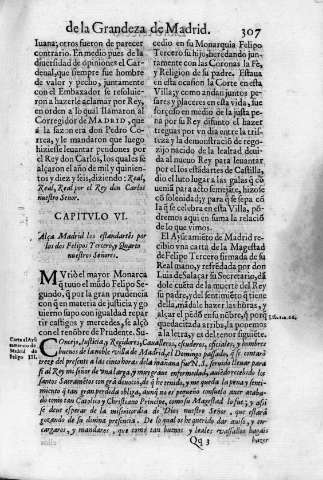 de la Grandeza de Madrid. 307
Iuana, otros fueron de parecer
contrario. En medio pues de la
diuersidad de opiniones el Car-
denal, que siempre fue hombre
de valor y pecho, juntamente
con el Embaxador se resoluie-
ron a hazerle aclamar por Rey,
en orden a lo qual llamaron al
Corregidor de MADRID, que
a la sazon era don Pedro Cor-
rea, y le mandaron que luego
hiziesse leuantar pendones por
el Rey don Carlos, los quales se
alçaron el año de mil y quinien-
tos y diez y seis, diziendo: Real,
Real, Real por el Rey don Carlos
nuestro Señor.
CAPITVLO VI.
Alça Madrid los estandartes por
los dos Felipos Tercero, y Quarto
nuestros Señores.
MVriò el mayor Monarca
q̃ tuuo el mũdo Felipo Se-
gundo, q̃ por la gran prudencia
con q̃ en materia de justicia y go-
uierno supo con igualdad repar-
tir castigos y mercedes, se alçò
con el renõbre de Prudente. Su-
cedio en su Monarquia Felipo
Tercero su hijo, heredando jun-
tamente con las Coronas la Fè,
y Religion de su padre. Estaua
en esta ocasion la Corte en esta
Villa; y como andan juntos pe-
sares y placeres en esta vida, fue
forçoso en medio de la justa pe-
na por su Rey difunto el hazer
treguas por vn dia entre la tris-
teza y la demonstració de rego-
zijo nacido de la lealtad deuida
al nueuo Rey para leuantar
por el los estãdartes de Castilla,
dio el luto lugar a las galas q̃ cõ
uenia para acto semejãte, hizose
cõ solenidad; y para q̃ se sepa cõ
la q̃ se celebra en esta Villa, põ-
dremos aqui en suma la relació
de lo que vimos.
El Ayũtamiẽto de Madrid re
cibio vna carta de la Magestad
de Felipo Tercero firmada de su
Real mano, y refrẽdada por don
Luis de Salaçar su Secretario, dã
dole cuẽta de la muerte del Rey
su padre, y del sentimiẽto q̃ tiene
della, mãdale hazer las hõras, y
alçar el pẽdõ en su nõbre, q̃ por
quedar citada arriba, la ponemos
a la letra, y es del tenor siguiẽte.
Carta al Ayũ
tamiento de
Madrid de
Felipo III.
COncejo, Iusticia, y Regidores, Caualleros, escuderos, oficiales, y hombres
buenos de la noble villa de Madrid, el Domingo passado, que se contarõ
treze del presente a las cinco horas de la mañana fue N.S. seruido lleuar para
si al Rey mi señor de vna larga, y muy graue enfermedad, auiẽdo recebido los
santos Sacramẽtos con grã deuociõ, de q̃ he tenido, y me queda la pena y senti-
miento q̃ tan gran perdida obliga, aunq̃ no es pequeño consuelo auer acaba-
do como tan Catolico y Christiano Principe, como su Magestad lo fue; y assi
se deue esperar de la misericordia de Dios nuestro Señor, que estarà
gozando de su diuina presencia. De lo qual os he querido dar auiso, y en-
cargaros, y mandaros, que como tan buenos y leales vassallos hagais
Qq 3 hazer